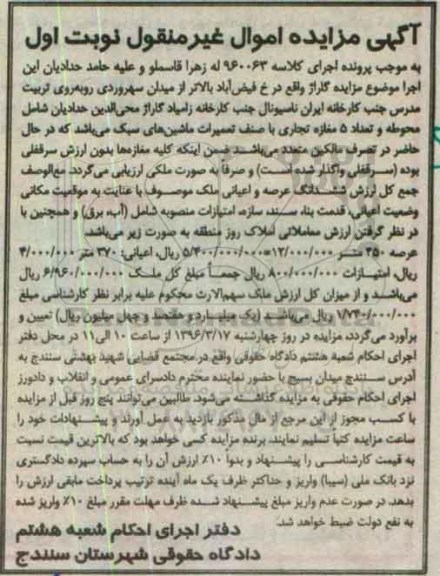 آگهی مزایده اموال غیرمنقول نوبت اول
به موجب پرونده اجرای کلاسه ۹۶۰۰۶۳ له زهرا قاسملو و علیه حامد حدادیان این
اجرا موضوع مزایده گاراژ واقع در خ فیض‌آباد بالاتر از میدان سهروردی روبه‌روی تربیت
مدرس جنب کارخانه ایران ناسیونال جنب کارخانه زامیاد گاراژ محی‌الدین حدادیان شامل
محوطه و تعداد ۵ مغازه تجاری با صنف تعمیرات ماشین‌های سبک می‌باشد که در حال
حاضر در تصرف مالکین متعدد می‌باشد ضمن اینکه کلیه مغازه‌ها بدون ارزش سرقفلی
بوده (سرقفلی واگذار شده است) و صرفا به صورت ملکی ارزیابی می‌گردد. مع‌الوصف
جمع کل ارزش ششدانگ عرصه و اعیانی ملک موصوف با عنایت به موقعیت مکانی
وضعیت اعیانی، قدمت بنا، سند، سازه، امتیازات منصوبه شامل (آب، برق) و همچنین با
در نظر گرفتن ارزش معاملاتی املاک روز منطقه به صورت زیر می‌باشد.
عرصه ۴۵۰ متر ۱۲/۰۰۰/۰۰۰=۵/۴۰۰/۰۰۰/۰۰۰ ریال، اعیانی: ۳۷۰ متر ۴/۰۰۰/۰۰۰
ریال، امتیازات ۸۰۰/۰۰۰/۰۰۰ ریال جمعاً مبلغ کل ملک ۶/۹۶۰/۰۰۰/۰۰۰ ریال
می‌باشد و از میزان کل ارزش ملک سهم‌الارث محکوم علیه برابر نظر کارشناسی مبلغ
۱/۷۴۰/۰۰۰/۰۰۰ ریال می‌باشد (یک میلیارد و هفتصد و چهل میلیون ریال) تعیین و
برآورد می‌گردد، مزایده در روز چهارشنبه ۱۳۹۶/۳/۱۷ از ساعت ۱۰ الی ۱۱ در محل دفتر
اجرای احکام شعبه هشتم دادگاه حقوقی واقع در مجتمع قضایی شهید بهشتی سنندج به
آدرس سنندج میدان بسیج با حضور نماینده محترم دادسرای عمومی و انقلاب و دادورز
اجرای احکام حقوقی به مزایده گذاشته می‌شود. طالبین می‌توانند پنج روز قبل از مزایده
با کسب مجوز از این مرجع از مال مذکور بازدید به عمل آورند و پیشنهادات خود را
ساعت مزایده کتباً تسلیم نمایند، برنده مزایده کسی خواهد بود که بالاترین قیمت نسبت
به قیمت کارشناسی را پیشنهاد و بدواً ۱۰٪ ارزش آن را به حساب سپرده دادگستری
نزد بانک ملی (سیبا) واریز و حداکثر ظرف یک ماه آینده ترتیب پرداخت مابقی ارزش را
بدهد. در صورت عدم واریز مبلغ پیشنهاد شده ظرف مهلت مقرر مبلغ ۱۰٪ واریز شده
به نفع دولت ضبط خواهد شد.
دفتر اجرای احکام شعبه هشتم
دادگاه حقوقی شهرستان سنندج